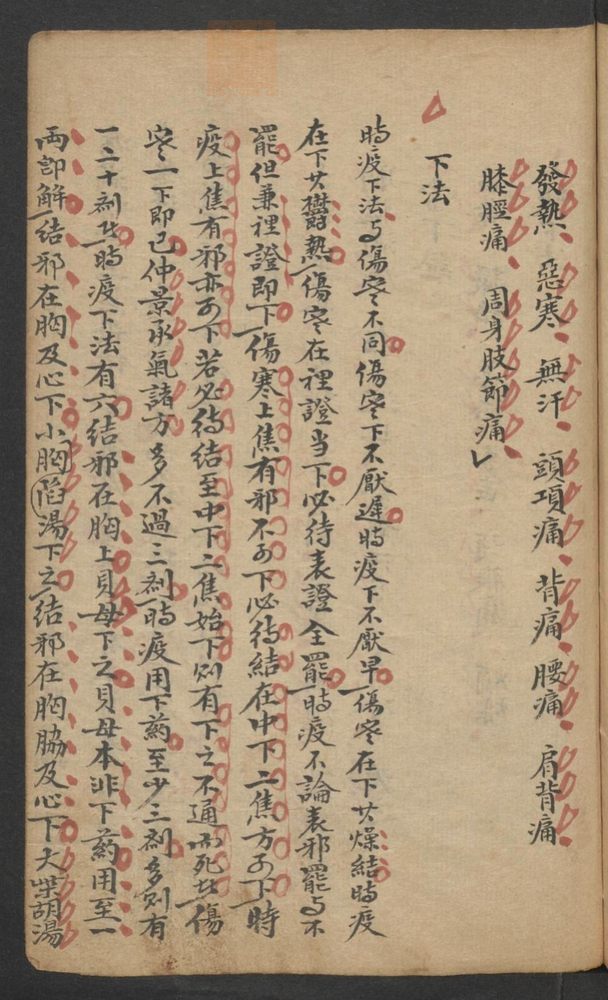 發熱 惡寒 無汗 頭項痛 背痛 腰痛 肩背痛
膝脛痛 周身肢節痛
下法
時疫下法与傷寒不同傷寒下不厭遲時疫下不厭早傷寒在下其燥結時疫
在下其鬱熱傷寒在裡證当下必待表證全罷時疫不論表邪罷与不
罷但兼裡證即下傷寒上焦有邪不可下必待結在中下二焦方可下時
疫上焦有邪亦可下若必待結至中下二焦始下則有下之不通而死者傷
寒一下即已仲景承氣諸方多不過三剂時疫用下葯至少三剂多則有
一二十剂者時疫下法有六結邪在胸上貝母下之貝母本非下葯用至一
両即解結邪在胸及心下小陷胸湯下之結邪在胸脇及心下大柴胡湯